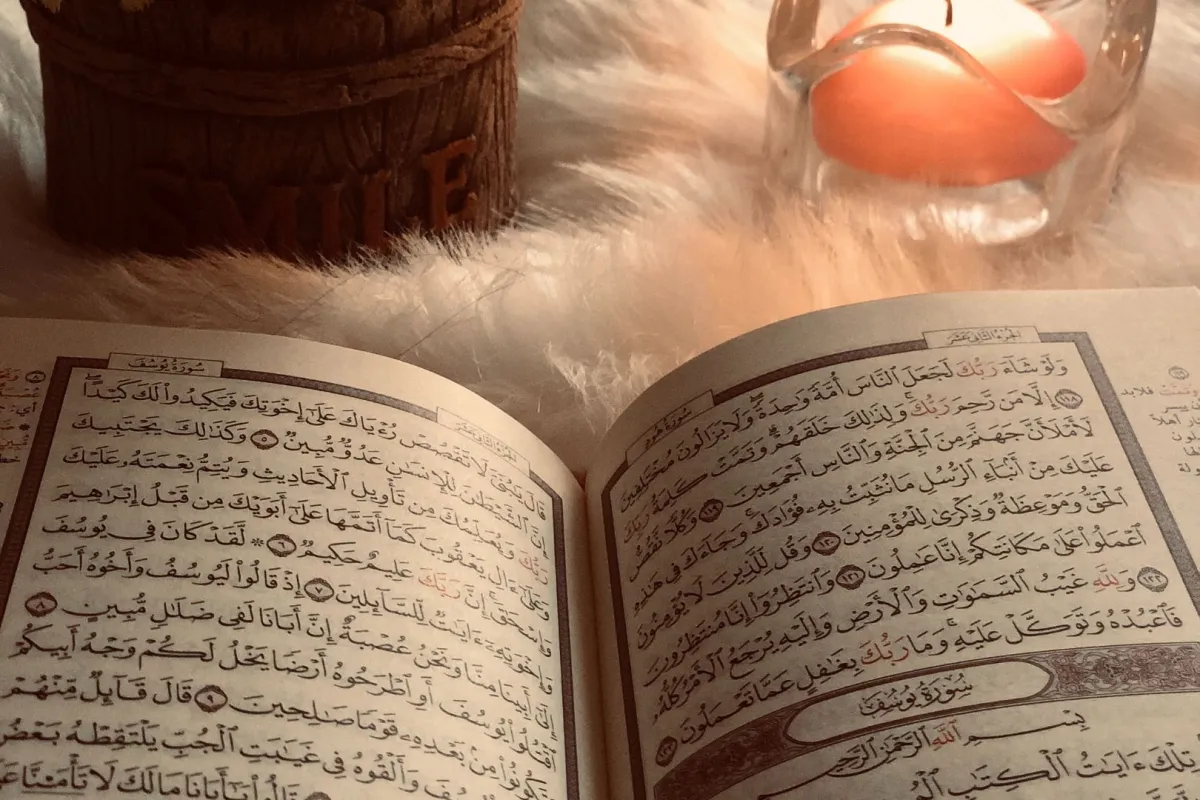 الجزء الثاني عشر
سورة هود
وَلَوْ شَآءَ رَبُّكَ لَجَعَلَ ٱلنَّاسَ أُمَّةً وَٰحِدَةً وَلَا يَزَالُونَ مُخْتَلِفِينَ
١١٨ إِلَّا مَن رَّحِمَ رَبُّكَ وَلِذَٰلِكَ خَلَقَهُمْ وَتَمَّتْ كَلِمَةُ رَبِّكَ
لَأَمْلَأَنَّ جَهَنَّمَ مِنَ ٱلْجِنَّةِ وَٱلنَّاسِ أَجْمَعِينَ ١١٩ وَكُلًّا نَّقُصُّ
عَلَيْكَ مِنْ أَنۢبَآءِ ٱلرُّسُلِ مَا نُثَبِّتُ بِهِۦ فُؤَادَكَ وَجَآءَكَ فِى هَٰذِهِ
ٱلْحَقُّ وَمَوْعِظَةٌ وَذِكْرَىٰ لِلْمُؤْمِنِينَ ١٢٠ وَقُل لِّلَّذِينَ لَا يُؤْمِنُونَ
ٱعْمَلُوا۟ عَلَىٰ مَكَانَتِكُمْ إِنَّا عَٰمِلُونَ ١٢١ وَٱنتَظِرُوٓا۟ إِنَّا مُنتَظِرُونَ
١٢٢ وَلِلَّهِ غَيْبُ ٱلسَّمَٰوَٰتِ وَٱلْأَرْضِ وَإِلَيْهِ يُرْجَعُ ٱلْأَمْرُ كُلُّهُۥ
فَٱعْبُدْهُ وَتَوَكَّلْ عَلَيْهِ وَمَا رَبُّكَ بِغَٰفِلٍ عَمَّا تَعْمَلُونَ ١٢٣
سُورَةُ يُوسُفَ
بِسْمِ ٱللَّهِ ٱلرَّحْمَٰنِ ٱلرَّحِيمِ
تِلْكَ ءَايَٰتُ ٱلْكِتَٰبِ
سورة يوسف
الجزء الثاني عشر
قَالَ يَٰبُنَىَّ لَا تَقْصُصْ رُءْيَاكَ عَلَىٰٓ إِخْوَتِكَ فَيَكِيدُوا۟ لَكَ كَيْدًا
إِنَّ ٱلشَّيْطَٰنَ لِلْإِنسَٰنِ عَدُوٌّ مُّبِينٌ ٥ وَكَذَٰلِكَ يَجْتَبِيكَ
رَبُّكَ وَيُعَلِّمُكَ مِن تَأْوِيلِ ٱلْأَحَادِيثِ وَيُتِمُّ نِعْمَتَهُۥ عَلَيْكَ
وَعَلَىٰٓ ءَالِ يَعْقُوبَ كَمَآ أَتَمَّهَا عَلَىٰٓ أَبَوَيْكَ مِن قَبْلُ إِبْرَٰهِيمَ
وَإِسْحَٰقَ إِنَّ رَبَّكَ عَلِيمٌ حَكِيمٌ ٦ ۞ لَّقَدْ كَانَ فِى يُوسُفَ
وَإِخْوَتِهِۦٓ ءَايَٰتٌ لِّلسَّآئِلِينَ ٧ إِذْ قَالُوا۟ لَيُوسُفُ وَأَخُوهُ أَحَبُّ
إِلَىٰٓ أَبِينَا مِنَّا وَنَحْنُ عُصْبَةٌ إِنَّ أَبَانَا لَفِى ضَلَٰلٍ مُّبِينٍ ٨
ٱقْتُلُوا۟ يُوسُفَ أَوِ ٱطْرَحُوهُ أَرْضًا يَخْلُ لَكُمْ وَجْهُ أَبِيكُمْ
وَتَكُونُوا۟ مِنۢ بَعْدِهِۦ قَوْمًا صَٰلِحِينَ ٩ قَالَ قَآئِلٌ مِّنْهُمْ
وَأَلْقُوهُ فِى غَيَٰبَتِ ٱلْجُبِّ يَلْتَقِطْهُ بَعْضُ
قَالُوا۟ يَٰٓأَبَانَا مَا لَكَ لَا تَأْمَ۫نَّا
SMILE